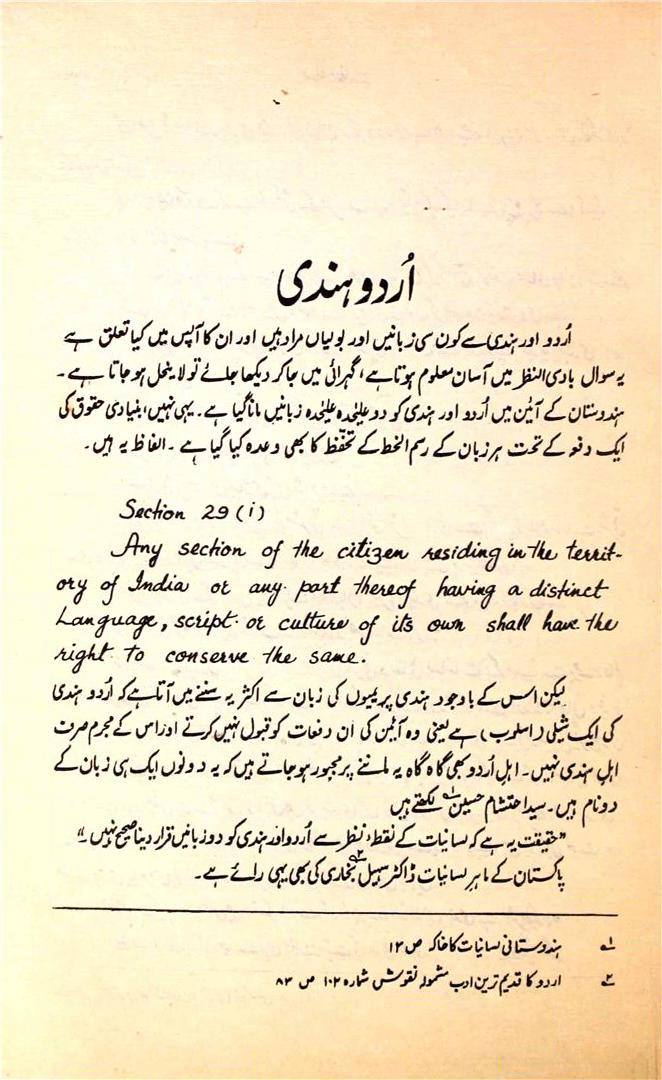 اُردو ہندی
اُردو اور ہندی سے کون سی زبانیں اور بولیاں مراد ہیں اور ان کا آپس میں کیا تعلق ہے
یہ سوال بادی النظر میں آسان معلوم ہوتا ہے، گہرائی میں جا کر دیکھا جائے تو لاینحل ہو جاتا ہے۔
ہندوستان کے آئین میں اُردو اور ہندی کو دو علیٰحدہ علیٰحدہ زبانیں مانا گیا ہے۔ یہی نہیں، بنیادی حقوق کی
ایک دفعہ کے تحت ہر زبان کے رسم الخط کے تحفّظ کا بھی وعدہ کیا گیا ہے۔ الفاظ یہ ہیں۔
Section 29 (i)
Any section of the citizen residing in the territ-
ory of India or any part thereof having a distinct
Language, script or culture of its own shall have the
right to conserve the same.
لیکن اس کے باوجود ہندی پریمیوں کی زبان سے اکثر یہ سننے میں آتا ہے کہ اُردو ہندی
کی ایک شیلی (اسلوب) ہے یعنی وہ آئین کی ان دفعات کو قبول نہیں کرتے اور اس کے مجرم صرف
اہلِ ہندی نہیں۔ اہلِ اُردو بھی گاہ گاہ یہ ماننے پر مجبور ہو جاتے ہیں کہ یہ دونوں ایک ہی زبان کے
دو نام ہیں۔ سید احتشام حسین ۱؎ لکھتے ہیں
”حقیقت یہ ہے کہ لسانیات کے نقطۂ نظر سے اُردو اور ہندی کو دو زبانیں قرار دینا صحیح نہیں۔“
پاکستان کے ماہرِ لسانیات ڈاکٹر سہیل بخاری ۲؎ کی بھی یہی رائے ہے۔
۱؎ ہندوستانی لسانیات کا خاکہ ص ۱۳
۲؎ اردو کا قدیم ترین ادب مشمولہ نقوش شمارہ ۱۰۲ ص ۸۳